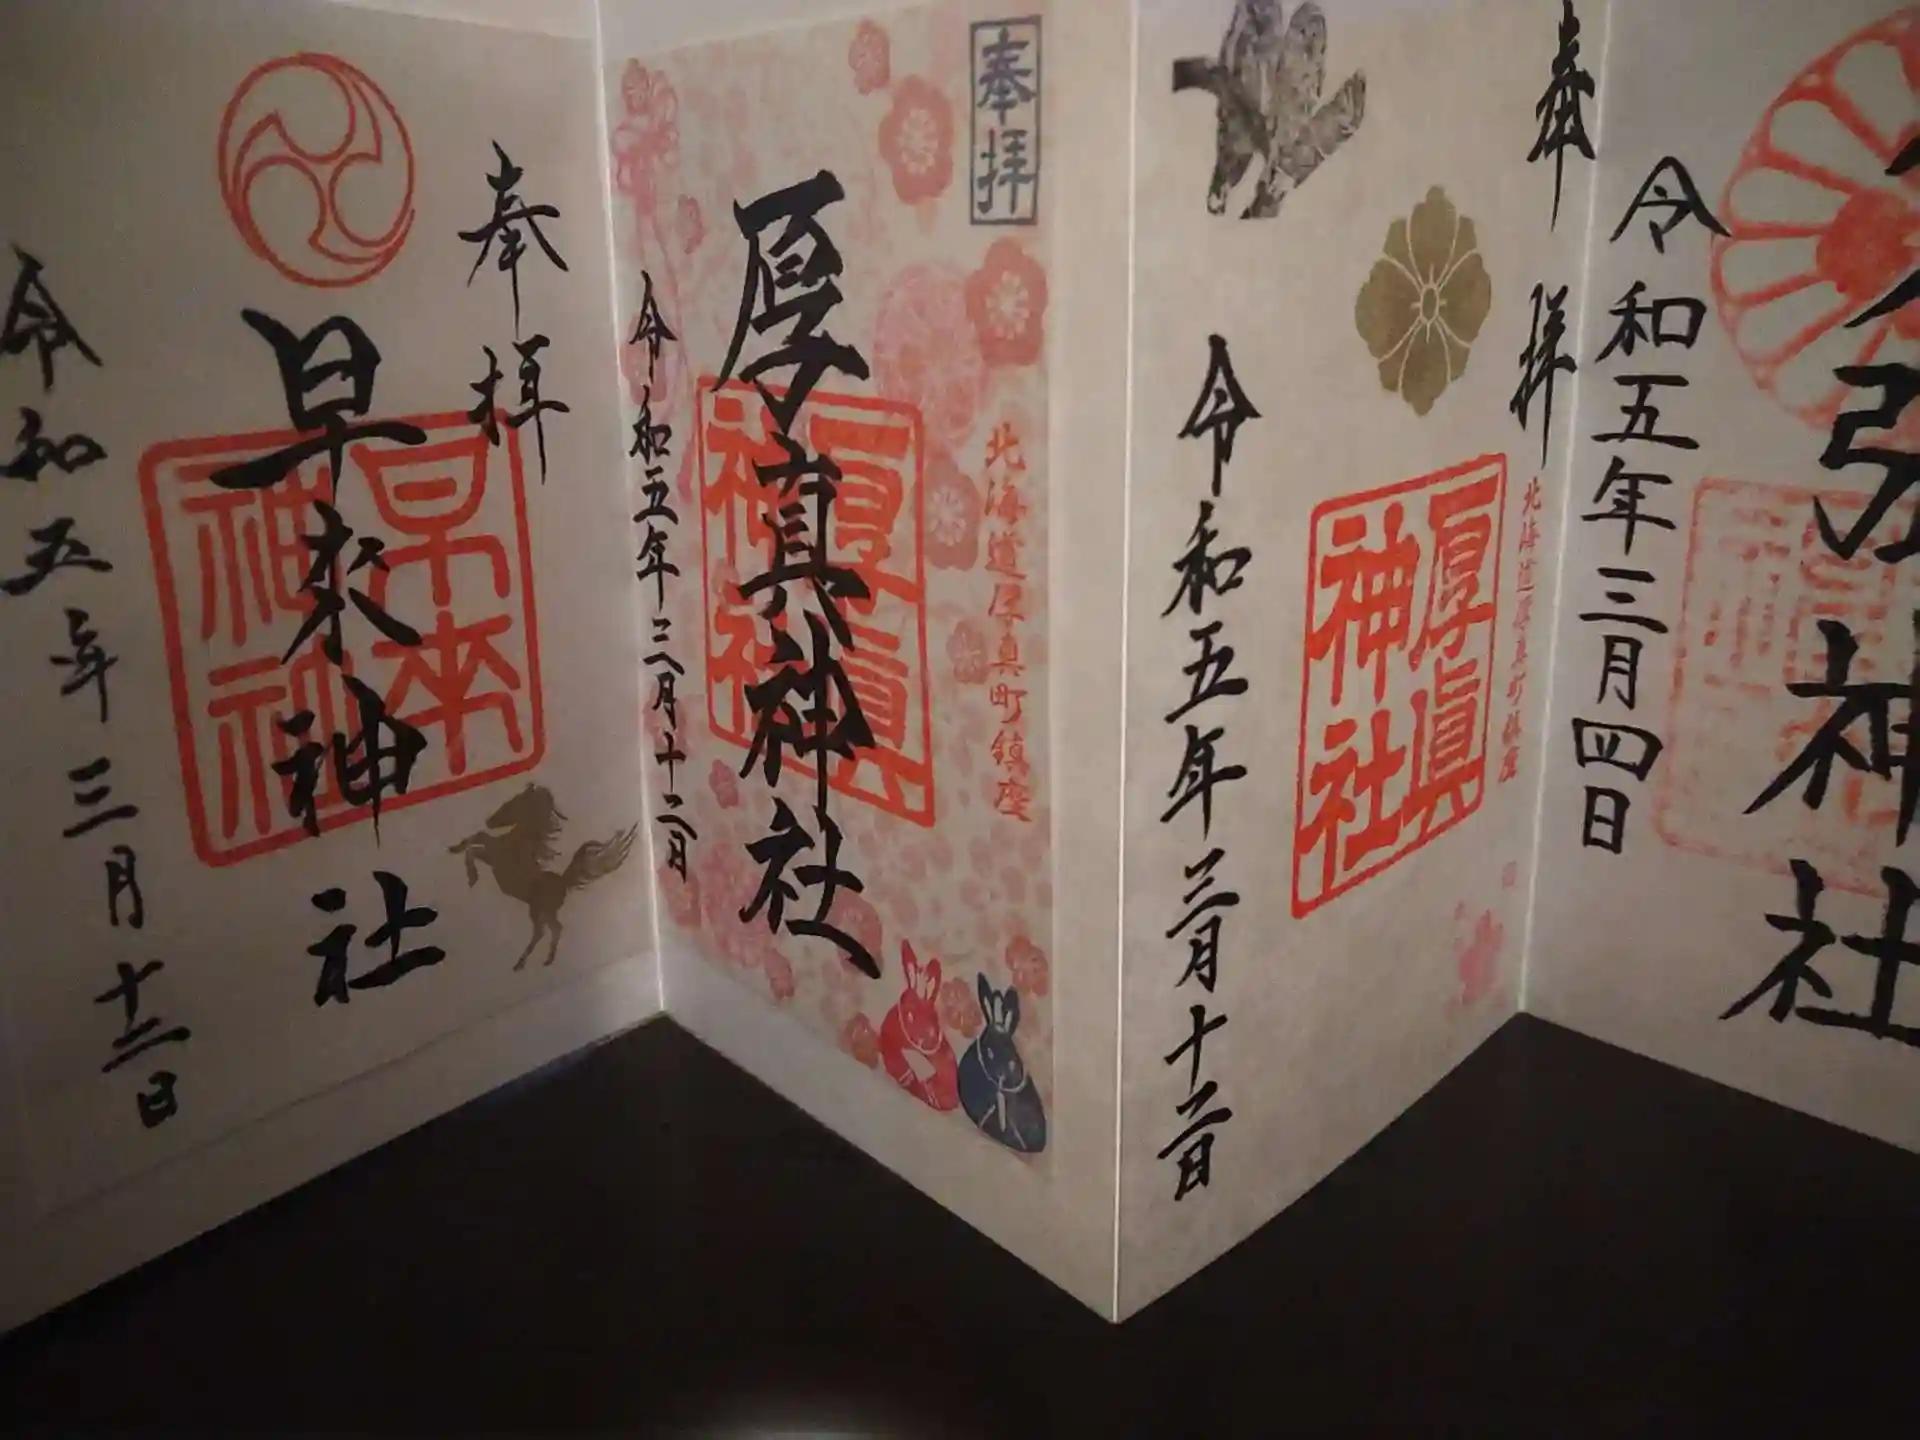 奉拝
早来神社
早来神社
令和五年三月十二日
奉拝
北海道厚真町鎮座
厚真神社
厚眞神社
令和五年三月十二日
奉拝
北海道厚真町鎮座
厚眞神社
令和五年三月十二日
神社
令和五年三月四日